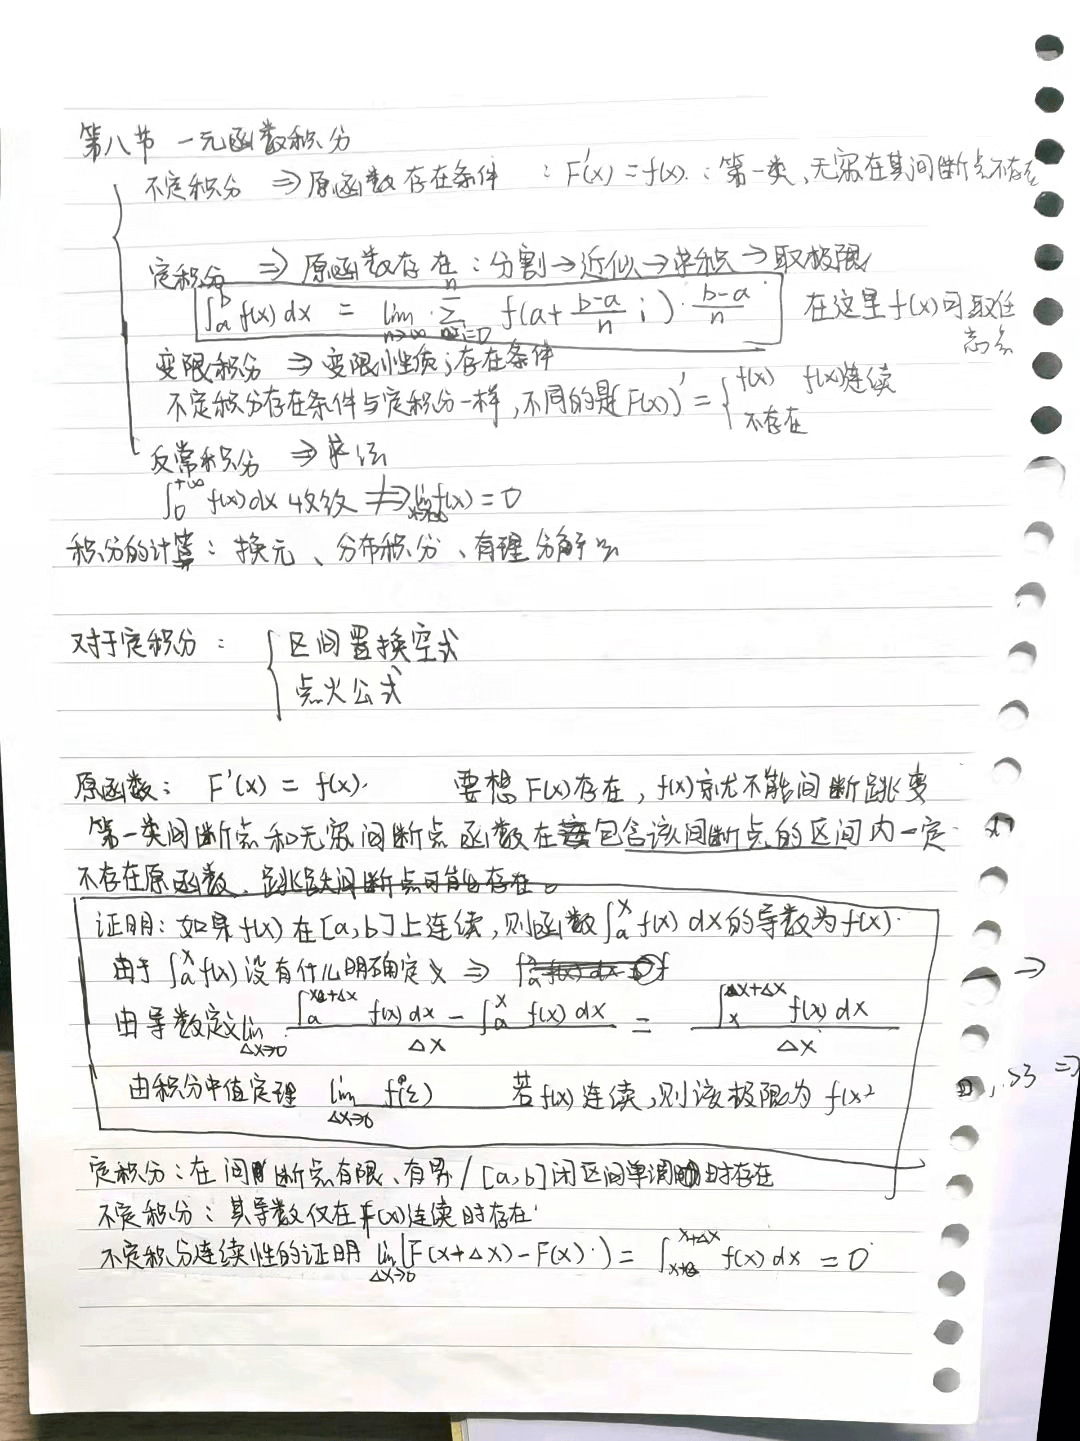 第八节 一元函数积分
不定积分 ⇒ 原函数存在条件 : F'(x) = f(x). : 第一类、无穷在其间断点不存在
定积分 ⇒ 原函数存在 : 分割→近似→求积→取极限
∫_a^b f(x) dx = lim_{n→∞} Σ_{i=0}^n f(a + (b-a)/n i) · (b-a)/n 在这里 f(x) 可取任
意点
变限积分 ⇒ 变限性质; 存在条件
不定积分存在条件与定积分一样, 不同的是(F(x))' = { f(x) f(x)连续
不存在
反常积分 ⇒ 求法
∫_0^{+∞} f(x) dx 收敛 ⇏ lim f(x) = 0
积分的计算: 换元、分布积分、有理分解
对于定积分: { 区间置换空式
点火公式
原函数: F'(x) = f(x). 要想F(x)存在, f(x)就不能间断跳变
第一类间断点和无穷间断点函数在包含该间断点的区间内一定
不存在原函数、跳跃间断点可能存在。
证明: 如果f(x)在[a,b]上连续, 则函数∫_a^x f(x) dx的导数为f(x).
由于∫_a^x f(x)没有什么明确定义 ⇒
由导数定义 lim_{Δx→0} (∫_a^{x+Δx} f(x) dx - ∫_a^x f(x) dx) / Δx = ∫_x^{x+Δx} f(x) dx / Δx
由积分中值定理 lim_{Δx→0} f(ξ) 若f(x)连续, 则该极限为 f(x
定积分: 在间断点有限、有界/[a,b]闭区间单调时存在
不定积分: 其导数仅在f(x)连续时存在
不定积分连续性的证明 lim_{Δx→0} (F(x+Δx) - F(x)) = ∫_x^{x+Δx} f(x) dx = 0